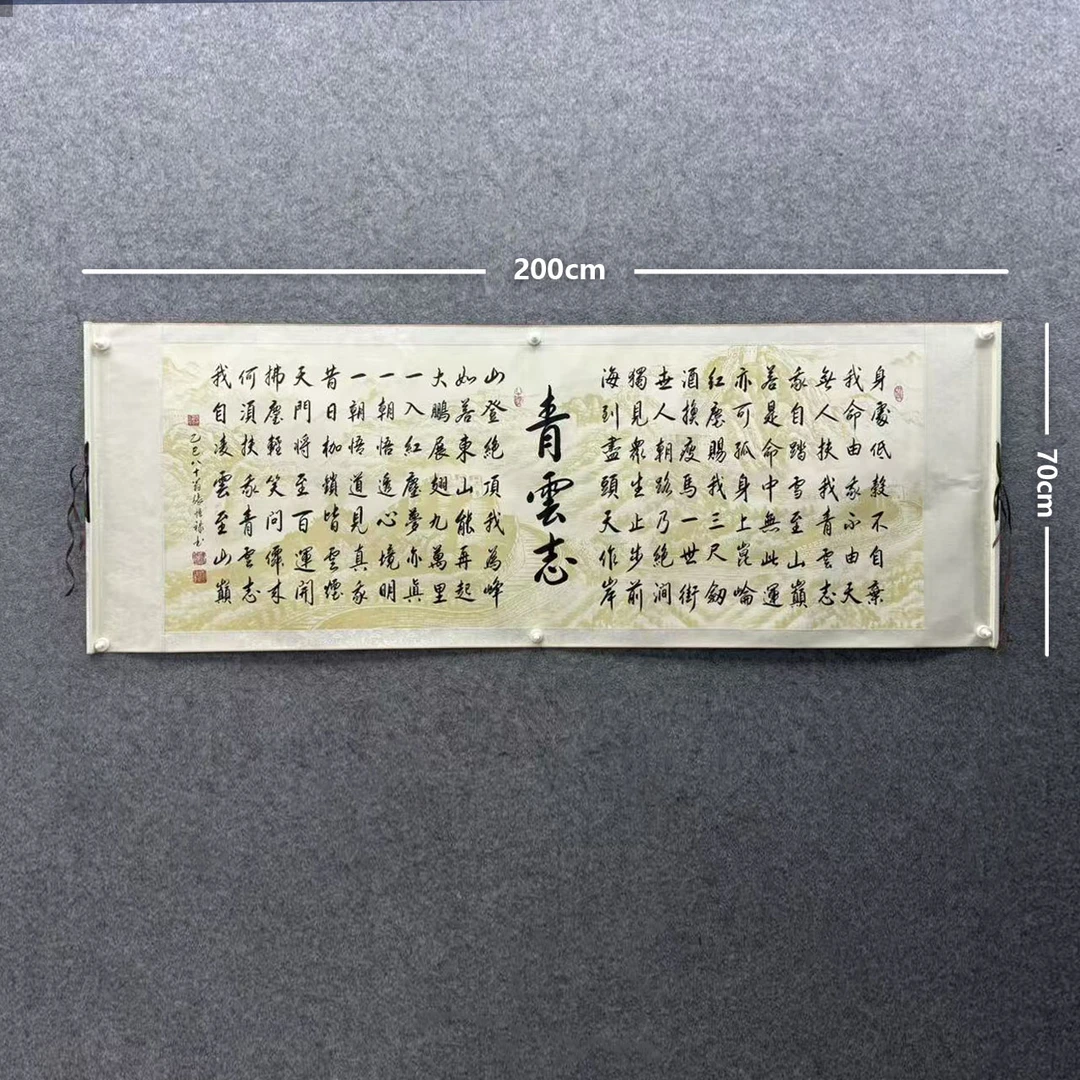 200cm
70cm
身處低穀不自棄
我命由我不由天
無人扶我青雲志
我自踏雪至山巔
若是命中無此運
亦可孤身上崑崙
紅塵賜我三尺劍
酒換瘦馬一世街
世人朝路乃絕澗
獨見眾生止步前
海到盡頭天作岸
青雲志
山登絕頂我為峰
如若東山能再起
大鵬展翅九萬里
一入紅塵夢亦真
一朝悟透心境明
一朝悟道見真我
昔日枷鎖皆雲煙
天門將至百運開
拂塵輕笑問僊來
何須扶我青雲志
我自凌雲至山巔
乙巳八十翁張 書